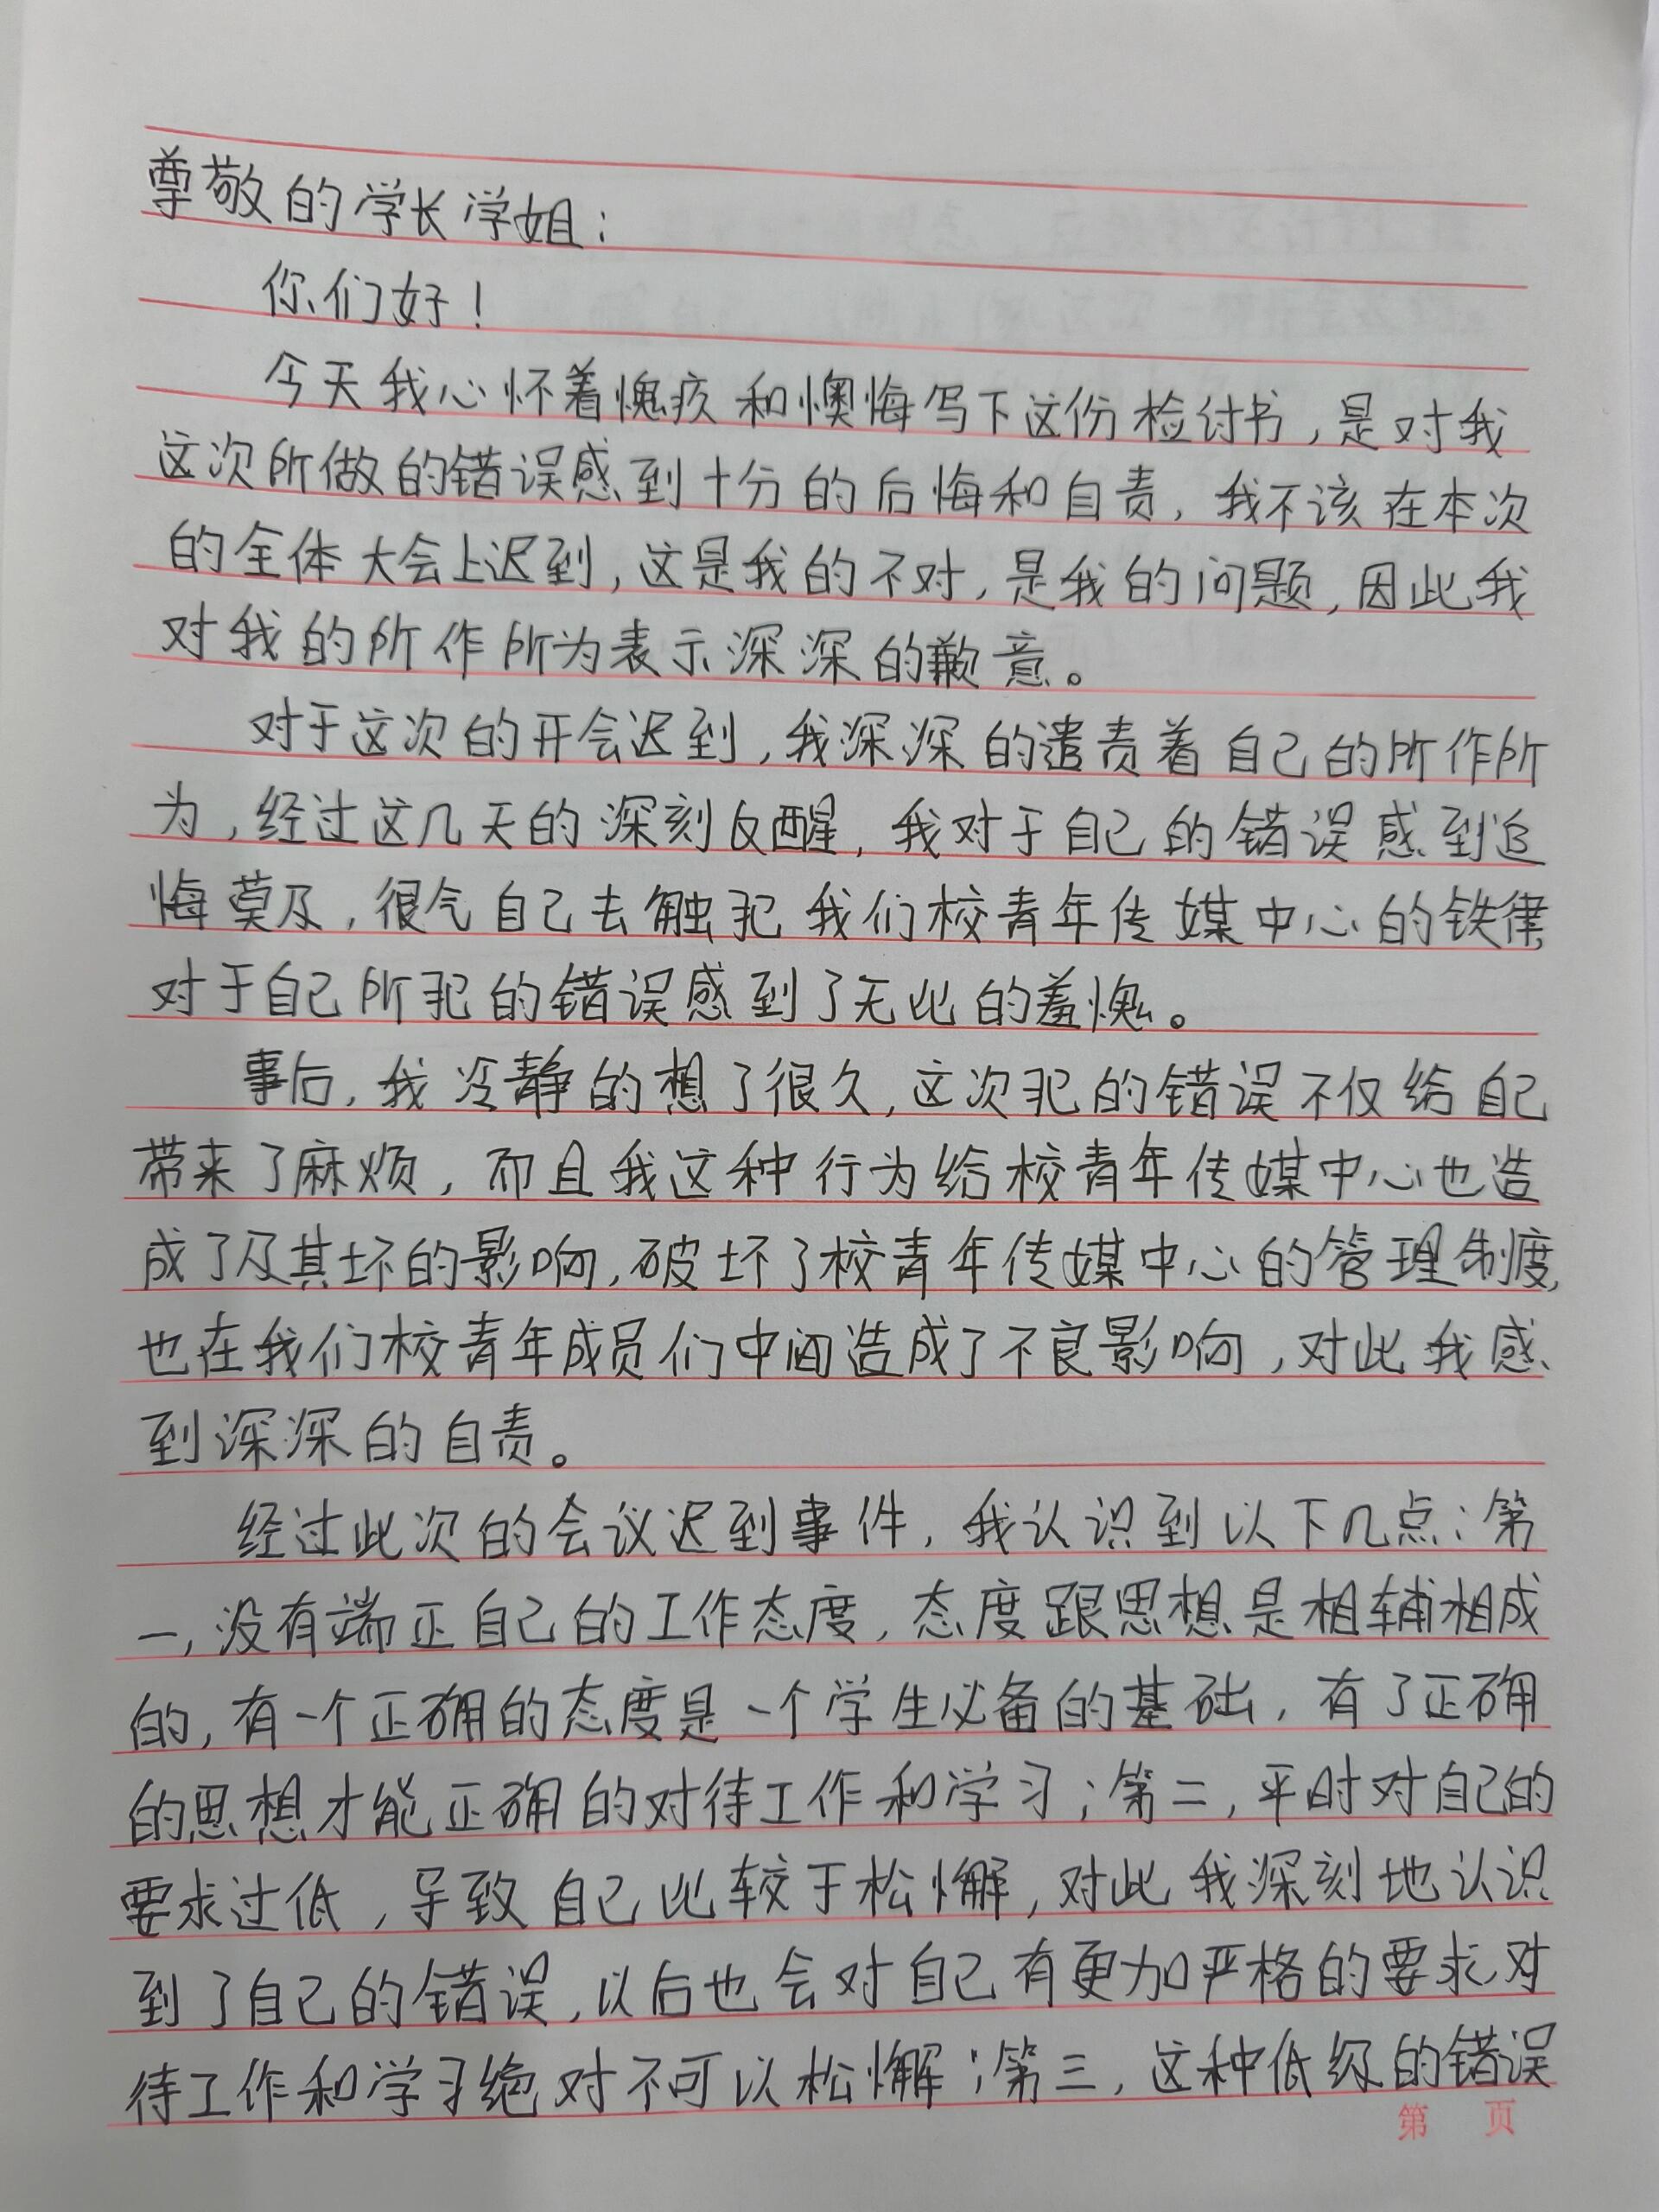 尊敬的学长学姐：
你们好！
今天我心怀着愧疚和懊悔写下这份检讨书，是对我
这次所做的错误感到十分的后悔和自责，我不该在本次
的全体大会上迟到，这是我的不对，是我的问题，因此我
对我的所作所为表示深深的歉意。
对于这次的开会迟到，我深深的谴责着自己的所作所
为，经过这几天的深刻反醒，我对于自己的错误感到追
悔莫及，很气自己去触犯我们校青年传媒中心的铁律，
对于自己所犯的错误感到了无比的羞愧。
事后，我冷静的想了很久，这次犯的错误不仅给自己
带来了麻烦，而且我这种行为给校青年传媒中心也造
成了及其坏的影响，破坏了校青年传媒中心的管理制度，
也在我们校青年成员们中间造成了不良影响，对此我感
到深深的自责。
经过此次的会议迟到事件，我认识到以下几点：第
一，没有端正自己的工作态度，态度跟思想是相辅相成
的，有一个正确的态度是一个学生必备的基础，有了正确
的思想才能正确的对待工作和学习；第二，平时对自己的
要求过低，导致自己比较于松懈，对此我深刻地认识
到了自己的错误，以后也会对自己有更加严格的要求对
待工作和学习绝对不可以松懈；第三，这种低级的错误
第 页